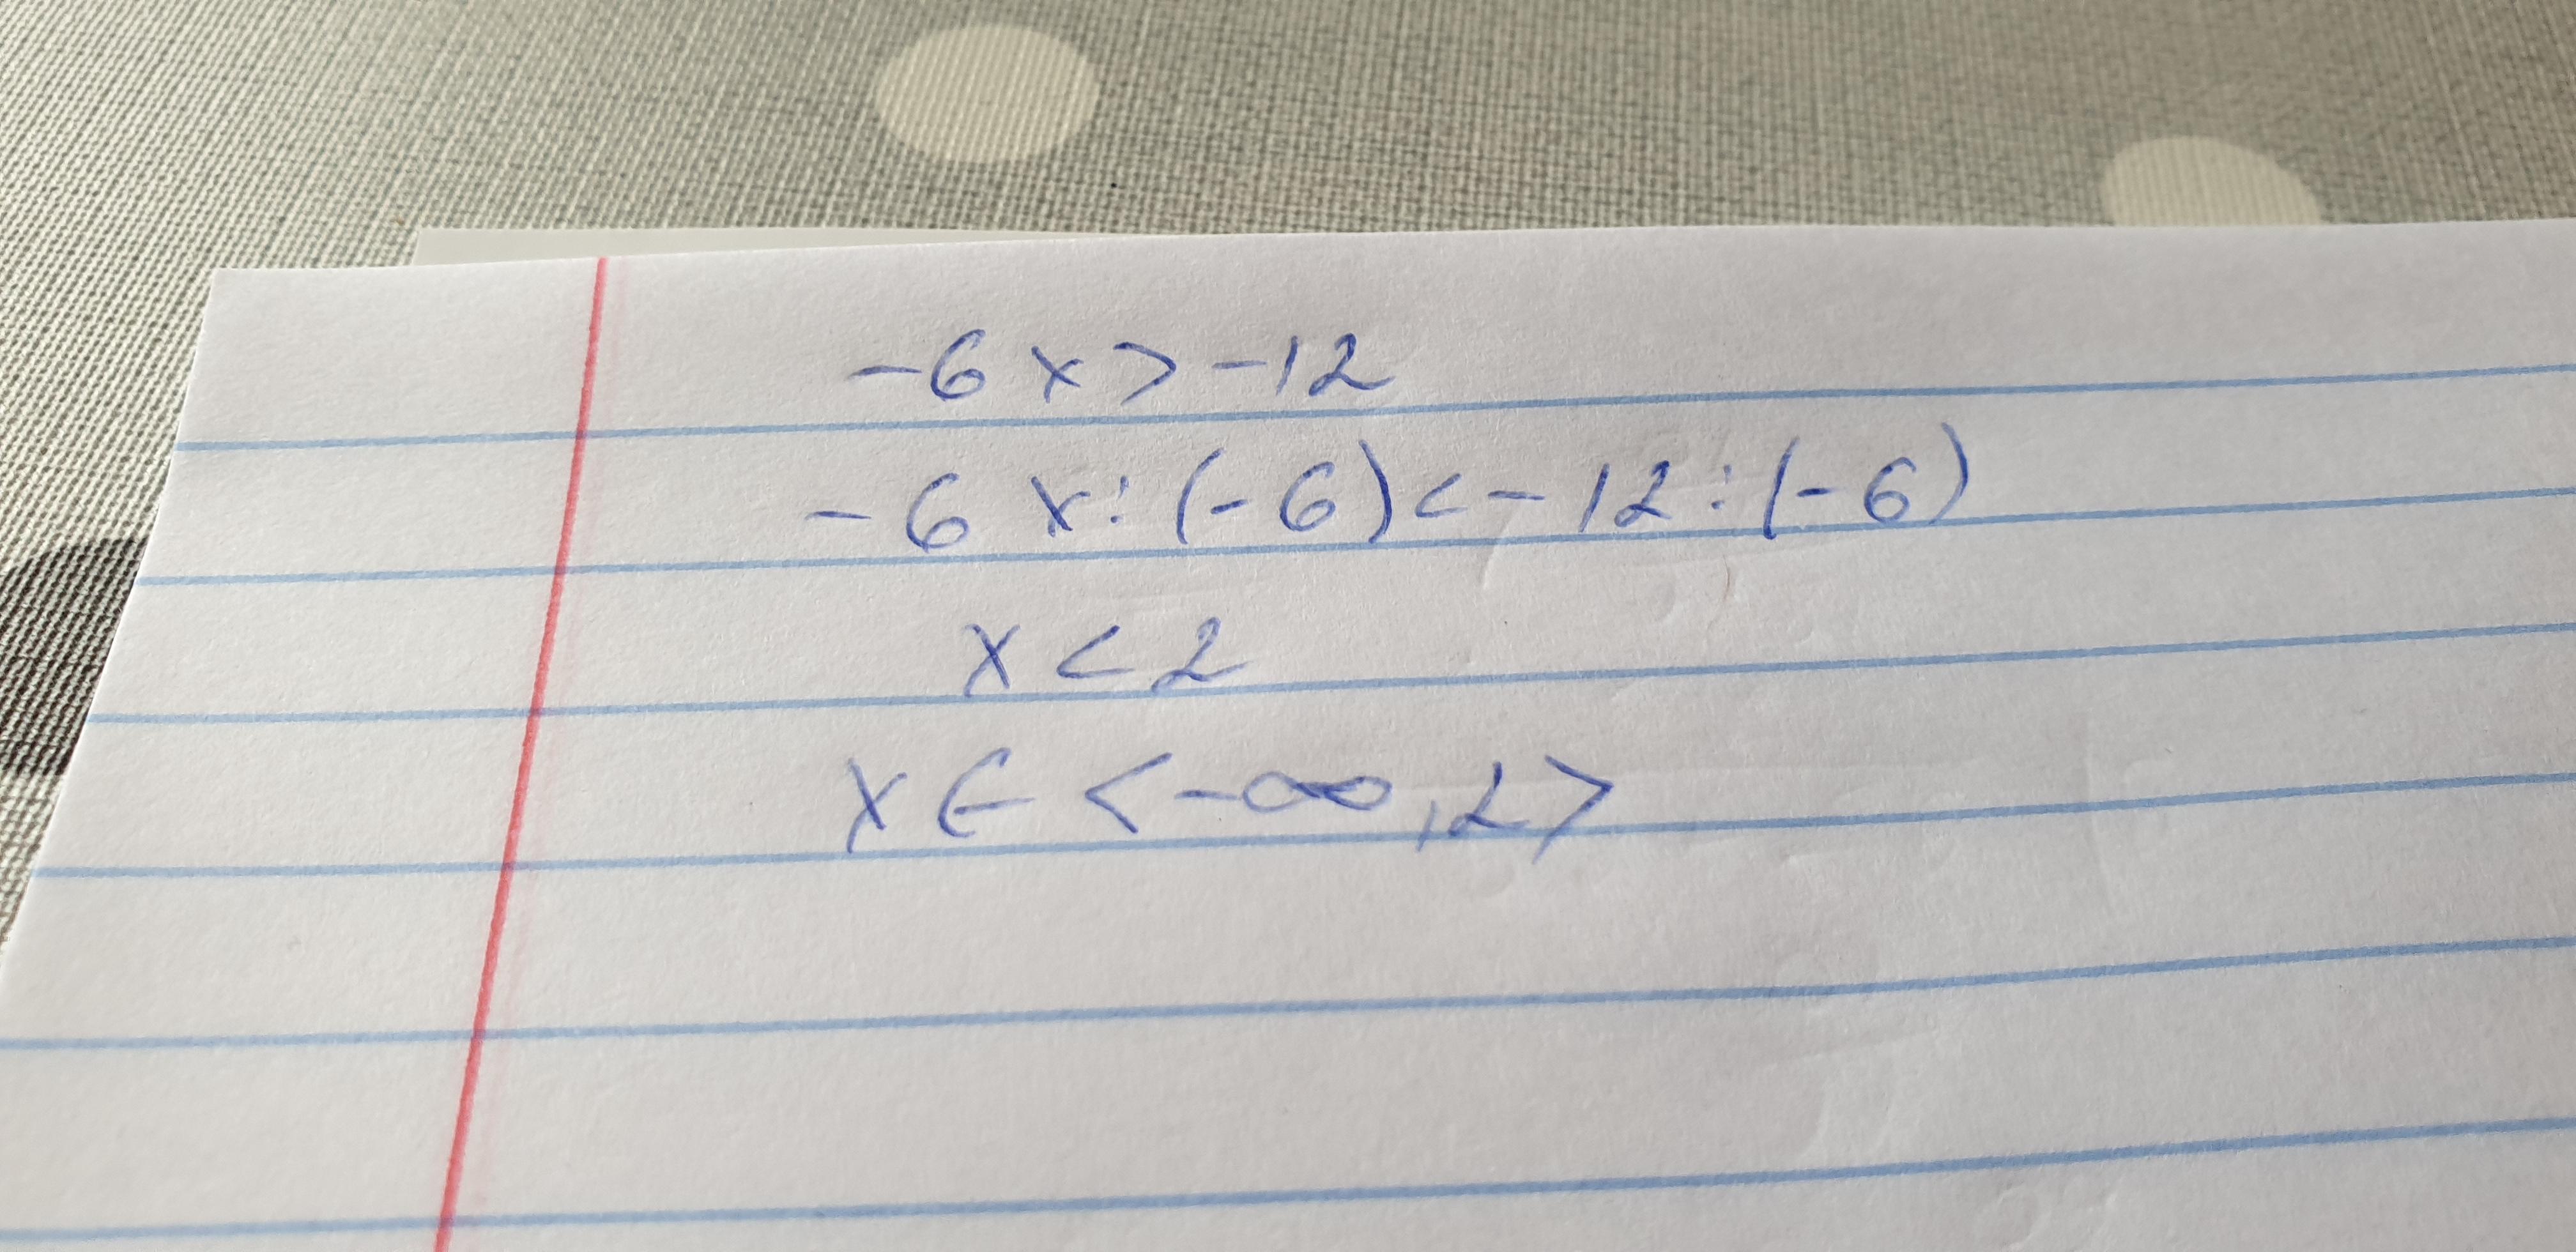 -6x>-12
-6x:(-6)<-12:(-6)
x<2
x∈<-∞,2>